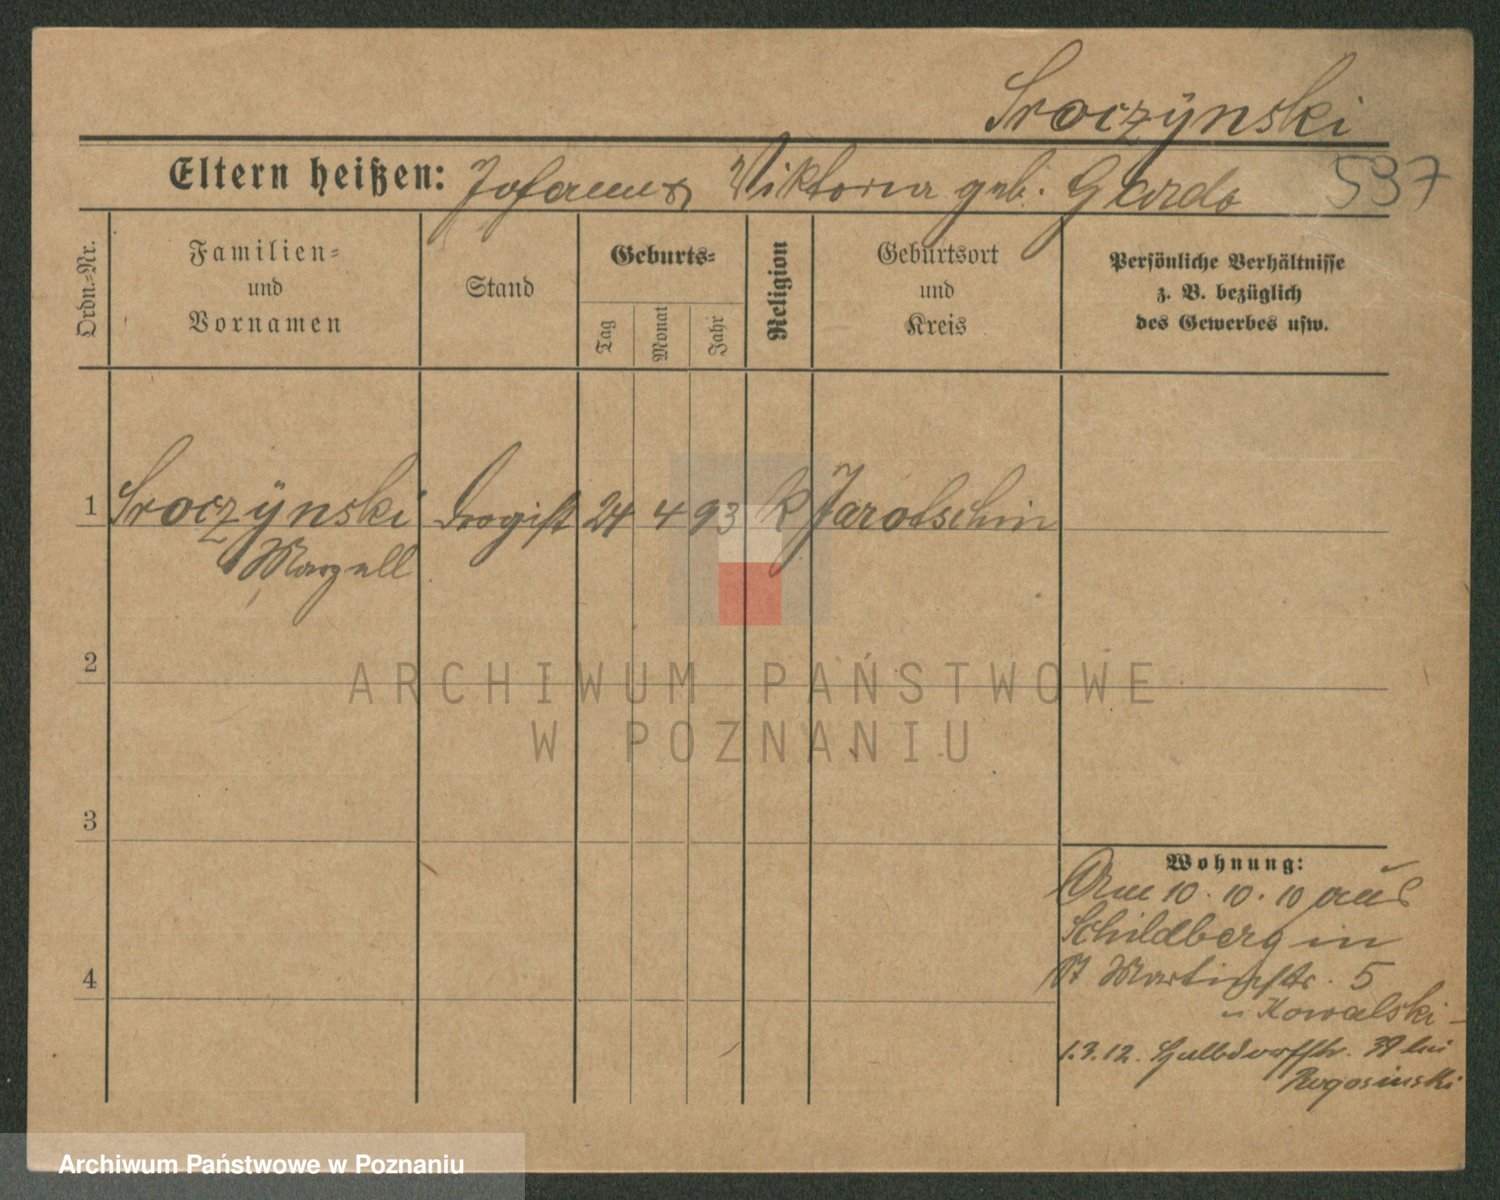 Sroczÿnski
Eltern heißen: Johannes Viktoria geb.
537
Ordn.-Nr.
Familien-
und
Vornamen
Stand
Geburts-
Tag
Monat
Jahr
Religion
Geburtsort
und
Kreis
Persönliche Verhältnisse
z. B. bezüglich
des Gewerbes usw.
1 Sroczÿnski Drogist 24 4 93 k Jarotschin
Marzell
2
3
4
Wohnung:
Am 10.10.10 aus
Schildberg in
St Martinstr. 5
Kowalski
1.3.12. Halbdorfstr. bei
Rogosinski
ARCHIWUM PAŃSTWOWE
W POZNANIU
Archiwum Państwowe w Poznaniu